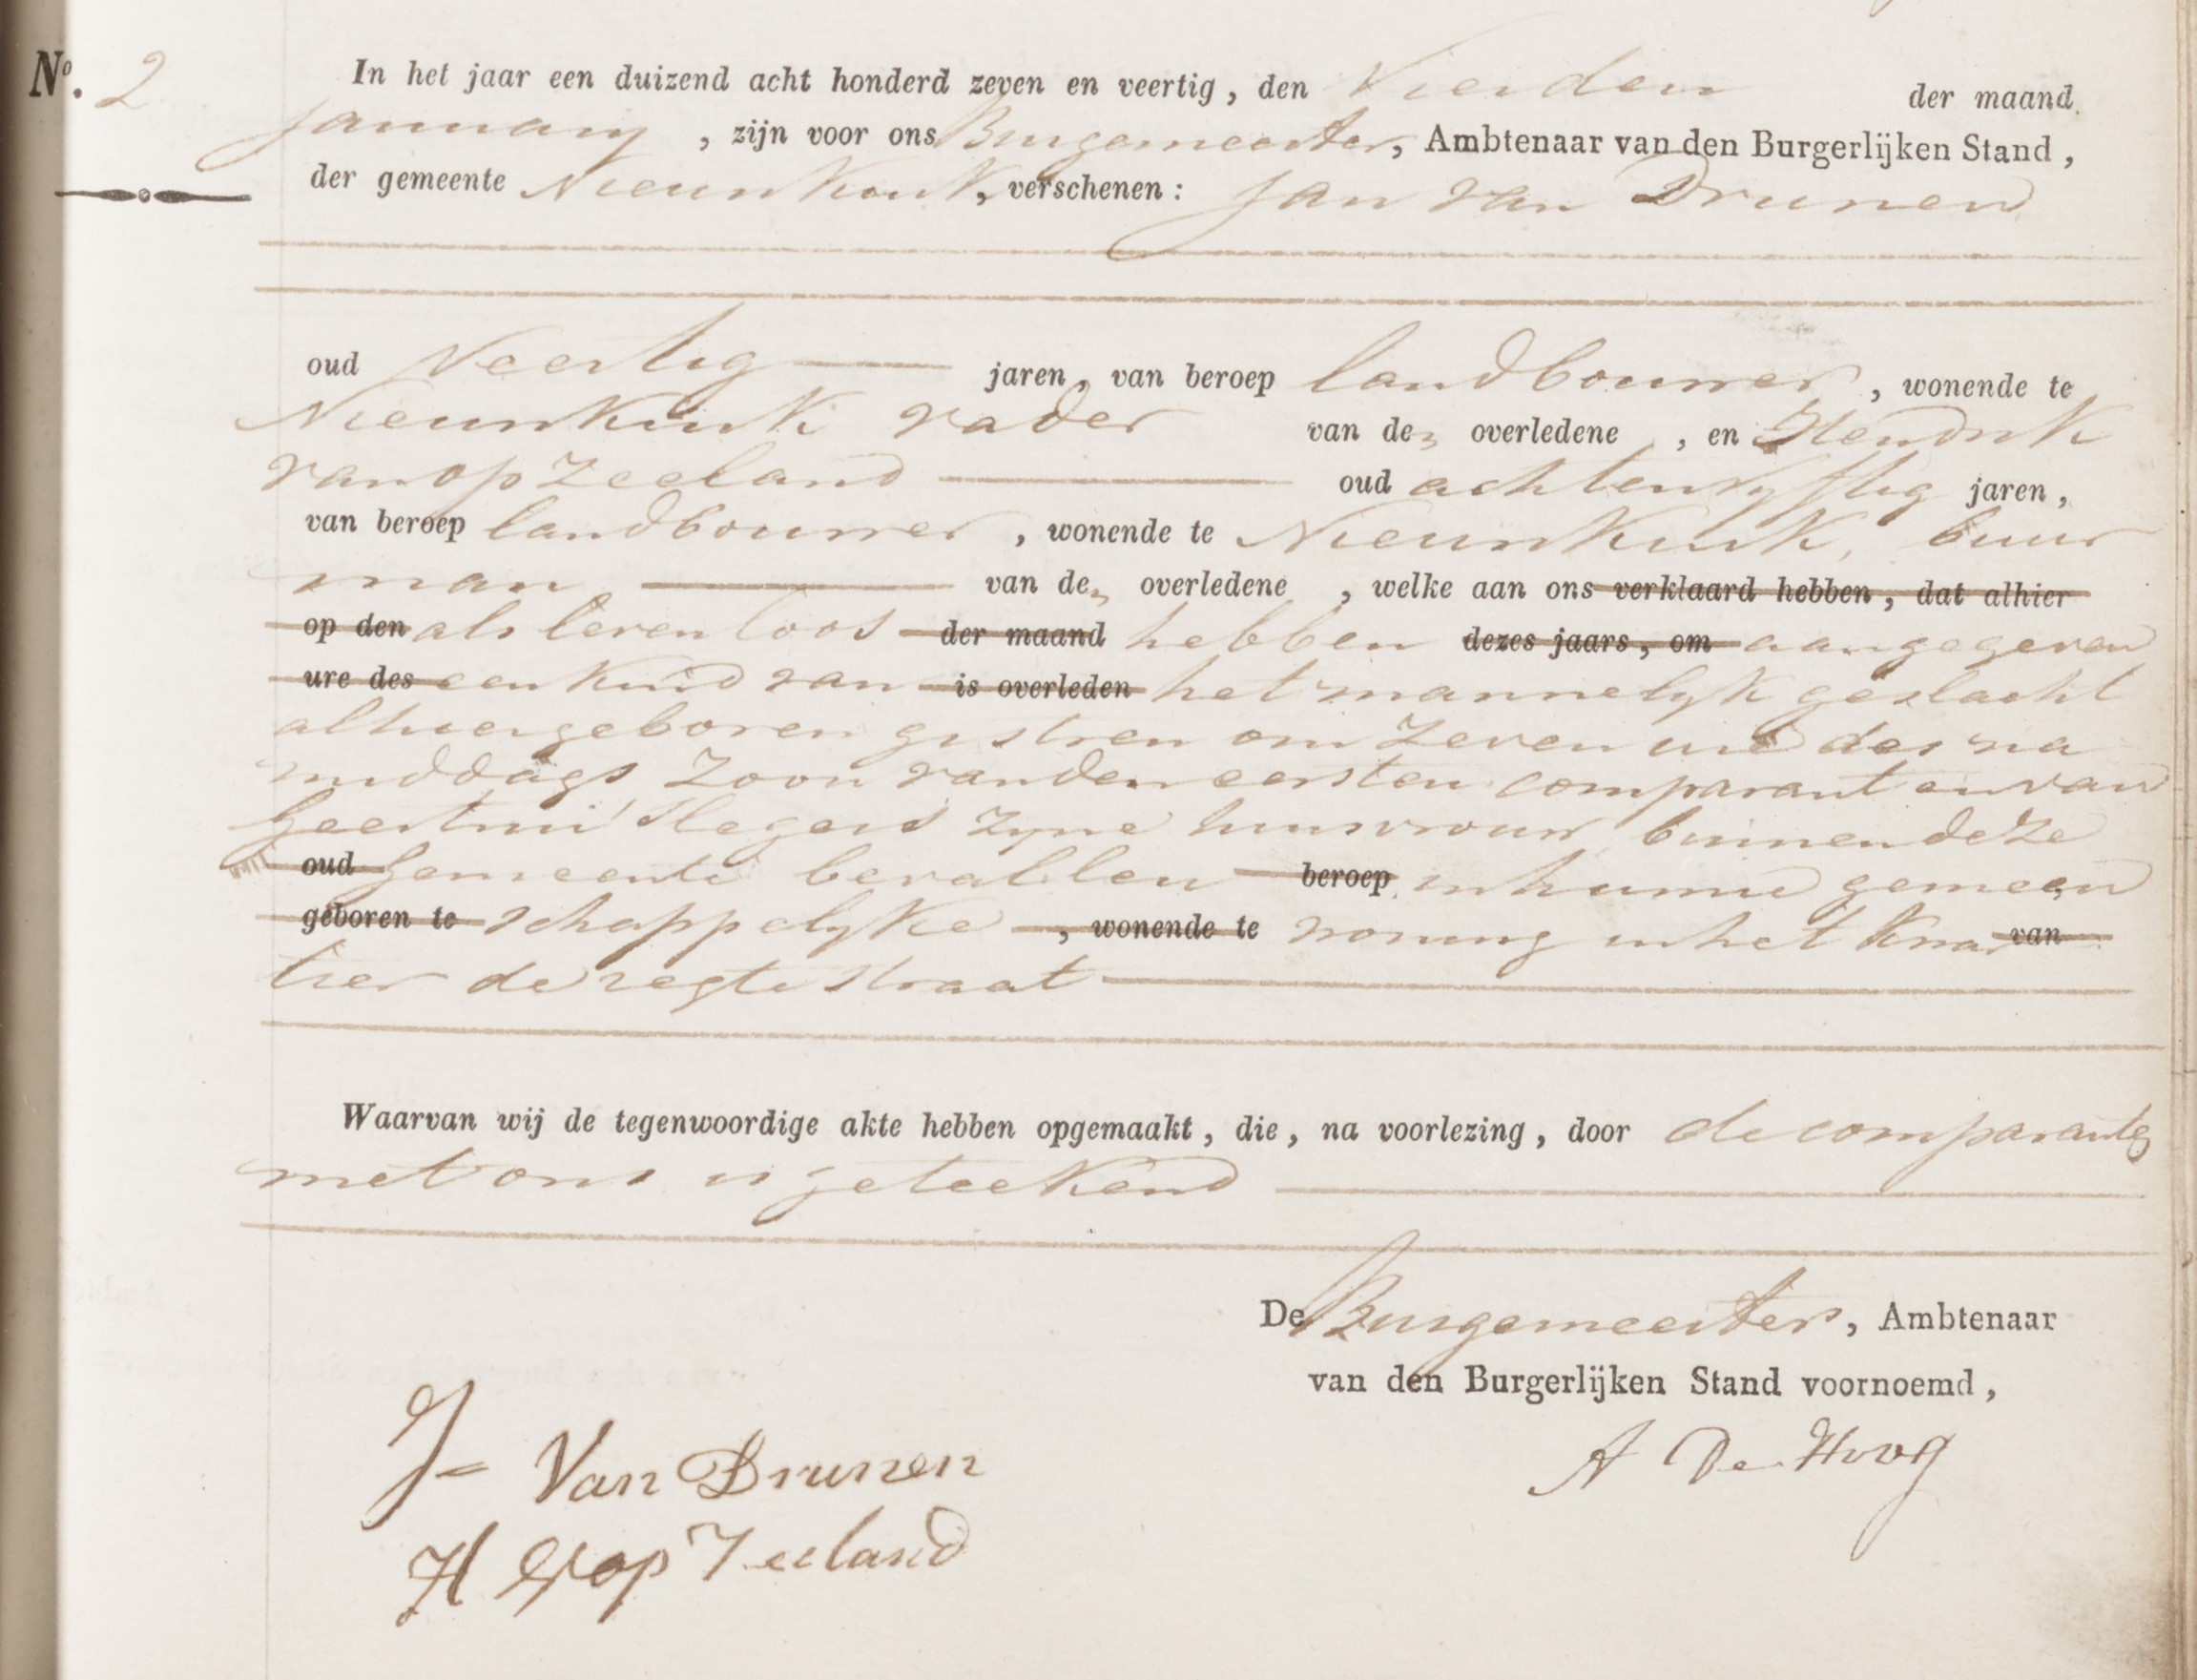 No. 2 In het jaar een duizend acht honderd zeven en veertig, den Vierden der maand
January, zijn voor ons Burgemeester, Ambtenaar van den Burgerlijken Stand,
der gemeente Nieuwkuik, verschenen: Jan van Drunen
oud Veertig jaren, van beroep landbouwer, wonende te
Nieuwkuik vader van den overledene, en Hendrik
van op Zeeland oud achtenvyftig jaren,
van beroep landbouwer, wonende te Nieuwkuik, buur
man van den overledene, welke aan ons verklaard hebben, dat alhier
op den als levenloos der maand hebben dezes jaars, om aangegeven
ure des een kind van is overleden het mannelyk geslacht
alhier geboren gistren om Zeven ure des na
middags Zoon van den eersten comparant en van
Geertrui Slegers zyne huisvrouw binnen deze
oud gemeente bevallen beroep in hunne gemeen
geboren te schappelyke, wonende te woning in het kwar van
tier de regte straat
Waarvan wij de tegenwoordige akte hebben opgemaakt, die, na voorlezing, door de comparanten
met ons is geteekend
De Burgemeester, Ambtenaar
van den Burgerlijken Stand voornoemd,
J= Van Drunen
A De Hoog
H V op Zeeland